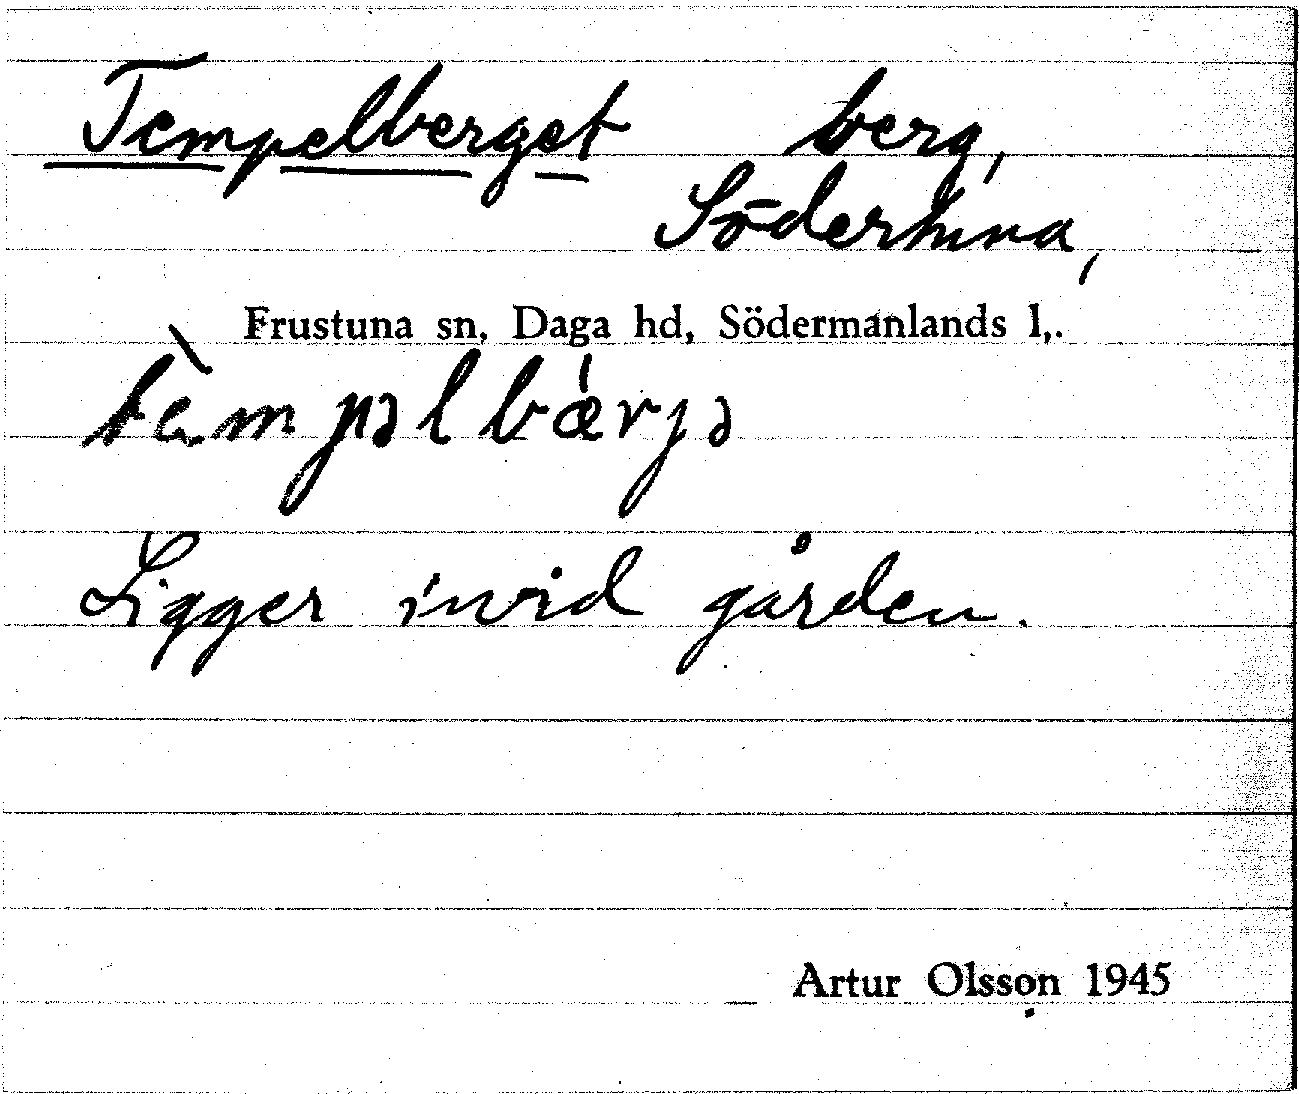 Tempelberget berg,
Södertuna,
Frustuna sn, Daga hd, Södermanlands l,.
tèmpəlbæ̀rjə
Ligger invid gården.
Artur Olsson 1945